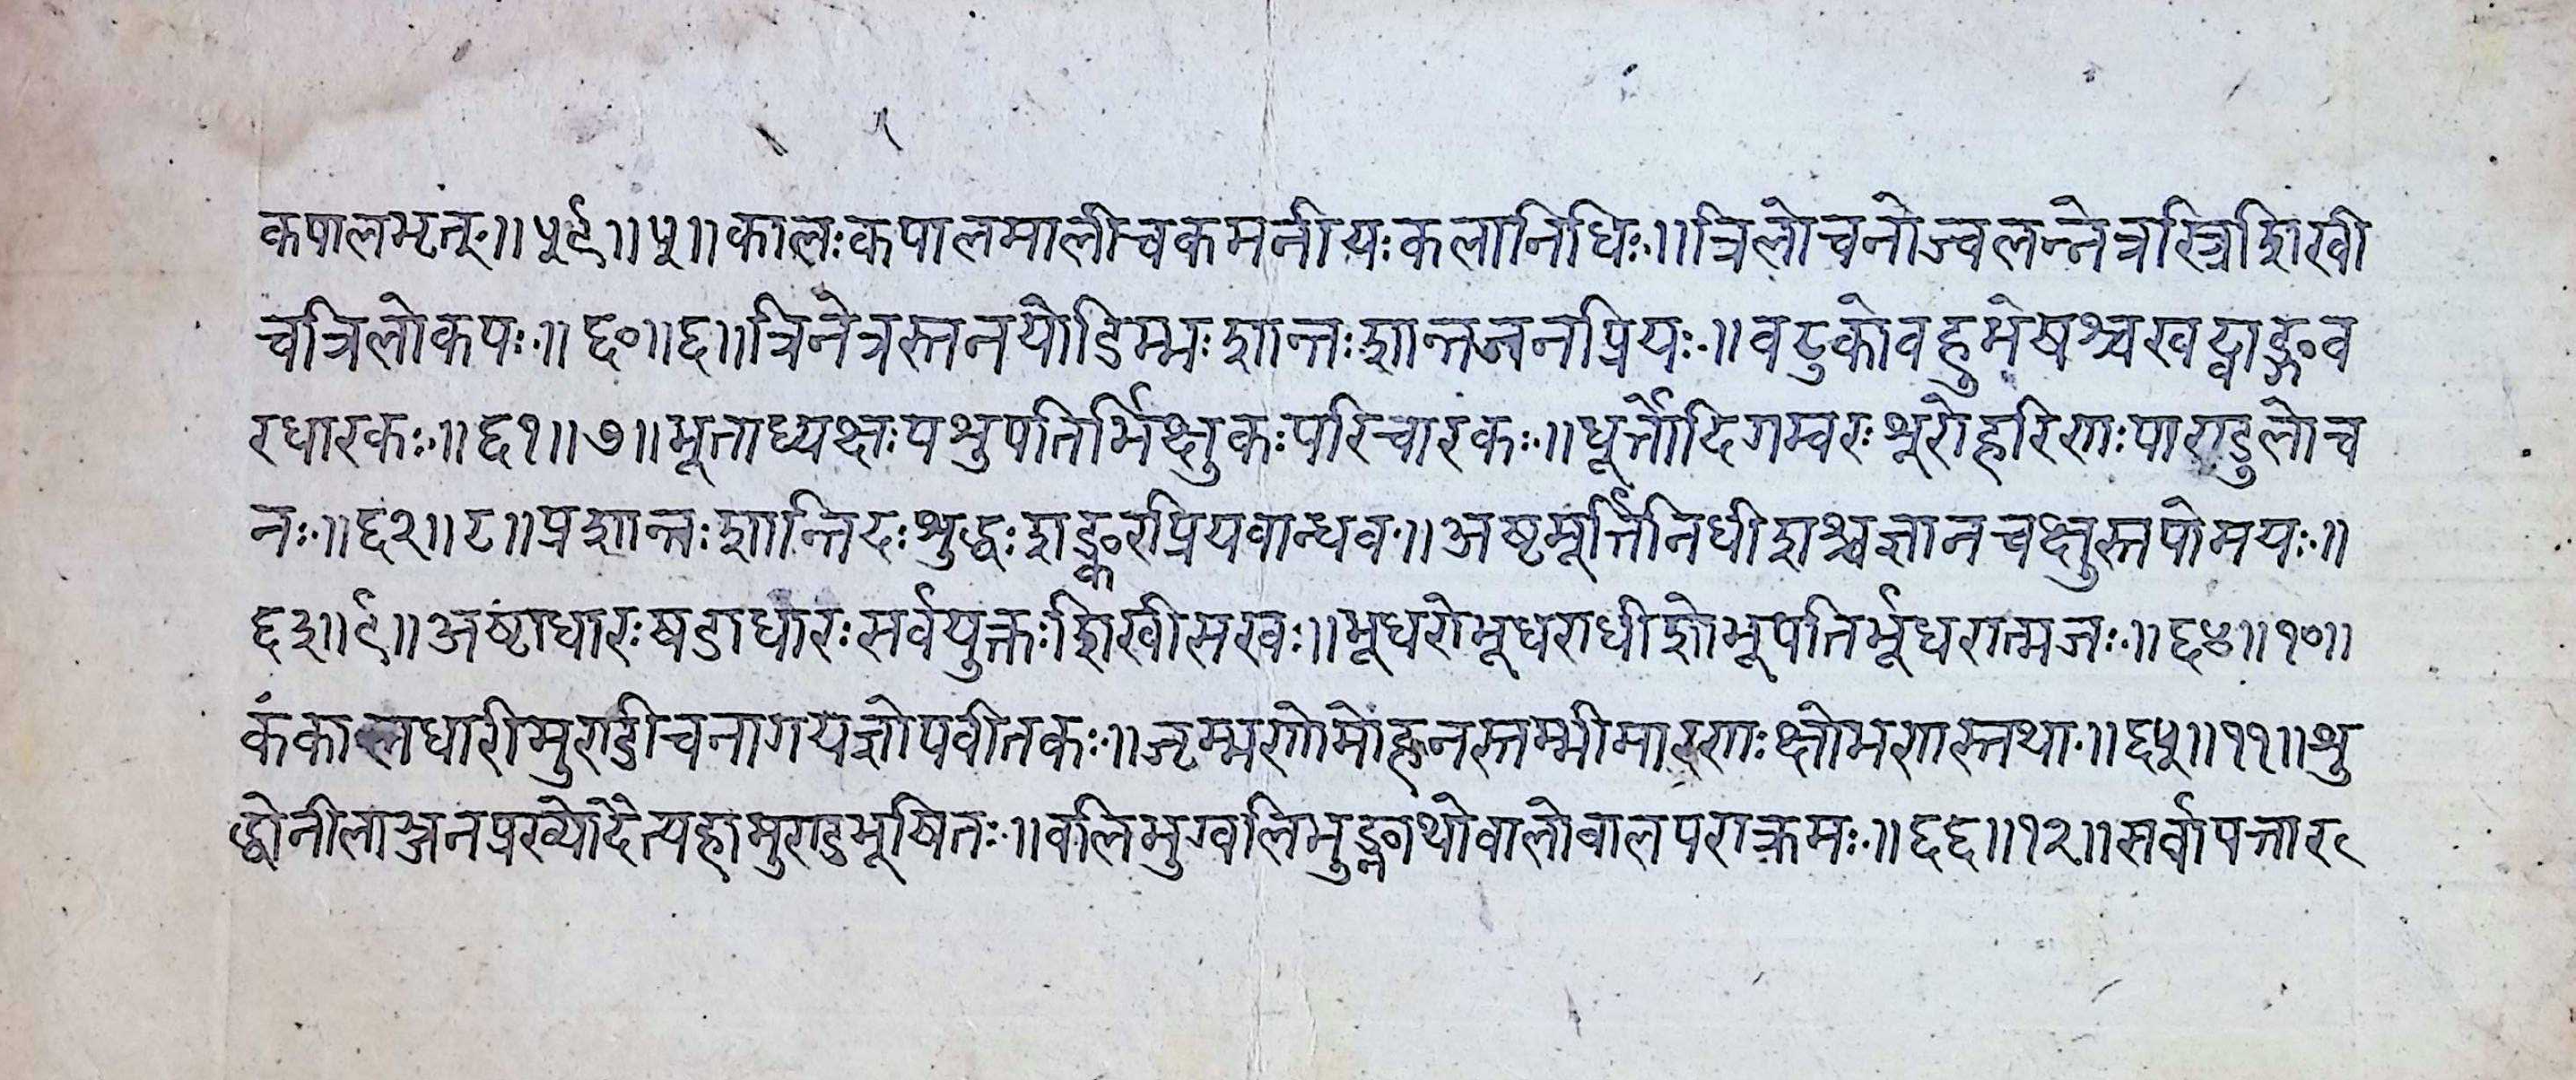 कपालभृत्॥५९॥५॥कालःकपालमालीचकमनीयःकलानिधिः॥त्रिलोचनोज्वलन्नेत्रस्त्रिशिखी
चत्रिलोकपः॥६०॥६॥त्रिनेत्रस्तनयोडिम्भःशान्तःशान्तजनप्रियः॥वटुकोवहुभेषश्चखट्वाङ्गव
रधारकः॥६१॥७॥भूताध्यक्षःपशुपतिर्भिक्षुकःपरिचारकः॥धूर्त्तोदिगम्वरःशूरोहरिणःपाण्डुलोच
नः॥६२॥८॥प्रशान्तःशान्तिदःशुद्धःशङ्करप्रियवान्धव॥अष्टमूर्त्तिनिधीशश्चज्ञानचक्षुस्तपोमयः॥
६३॥९॥अष्टाधारःषडाधारःसर्वयुक्तःशिखीसखः॥भूधरोभूधराधीशोभूपतिर्भूधरात्मजः॥६४॥१०॥
कंकालधारीमुण्डीचनागयज्ञोपवीतकः॥जृम्भणोमोहनस्तम्भीमारणःक्षोभणस्तथा॥६५॥११॥शु
द्धोनीलाञ्जनप्रख्योदैत्यहामुण्डभूषितः॥वलिभुग्वलिभुङ्नाथोवालोवालपराक्रमः॥६६॥१२॥सर्वापत्तार